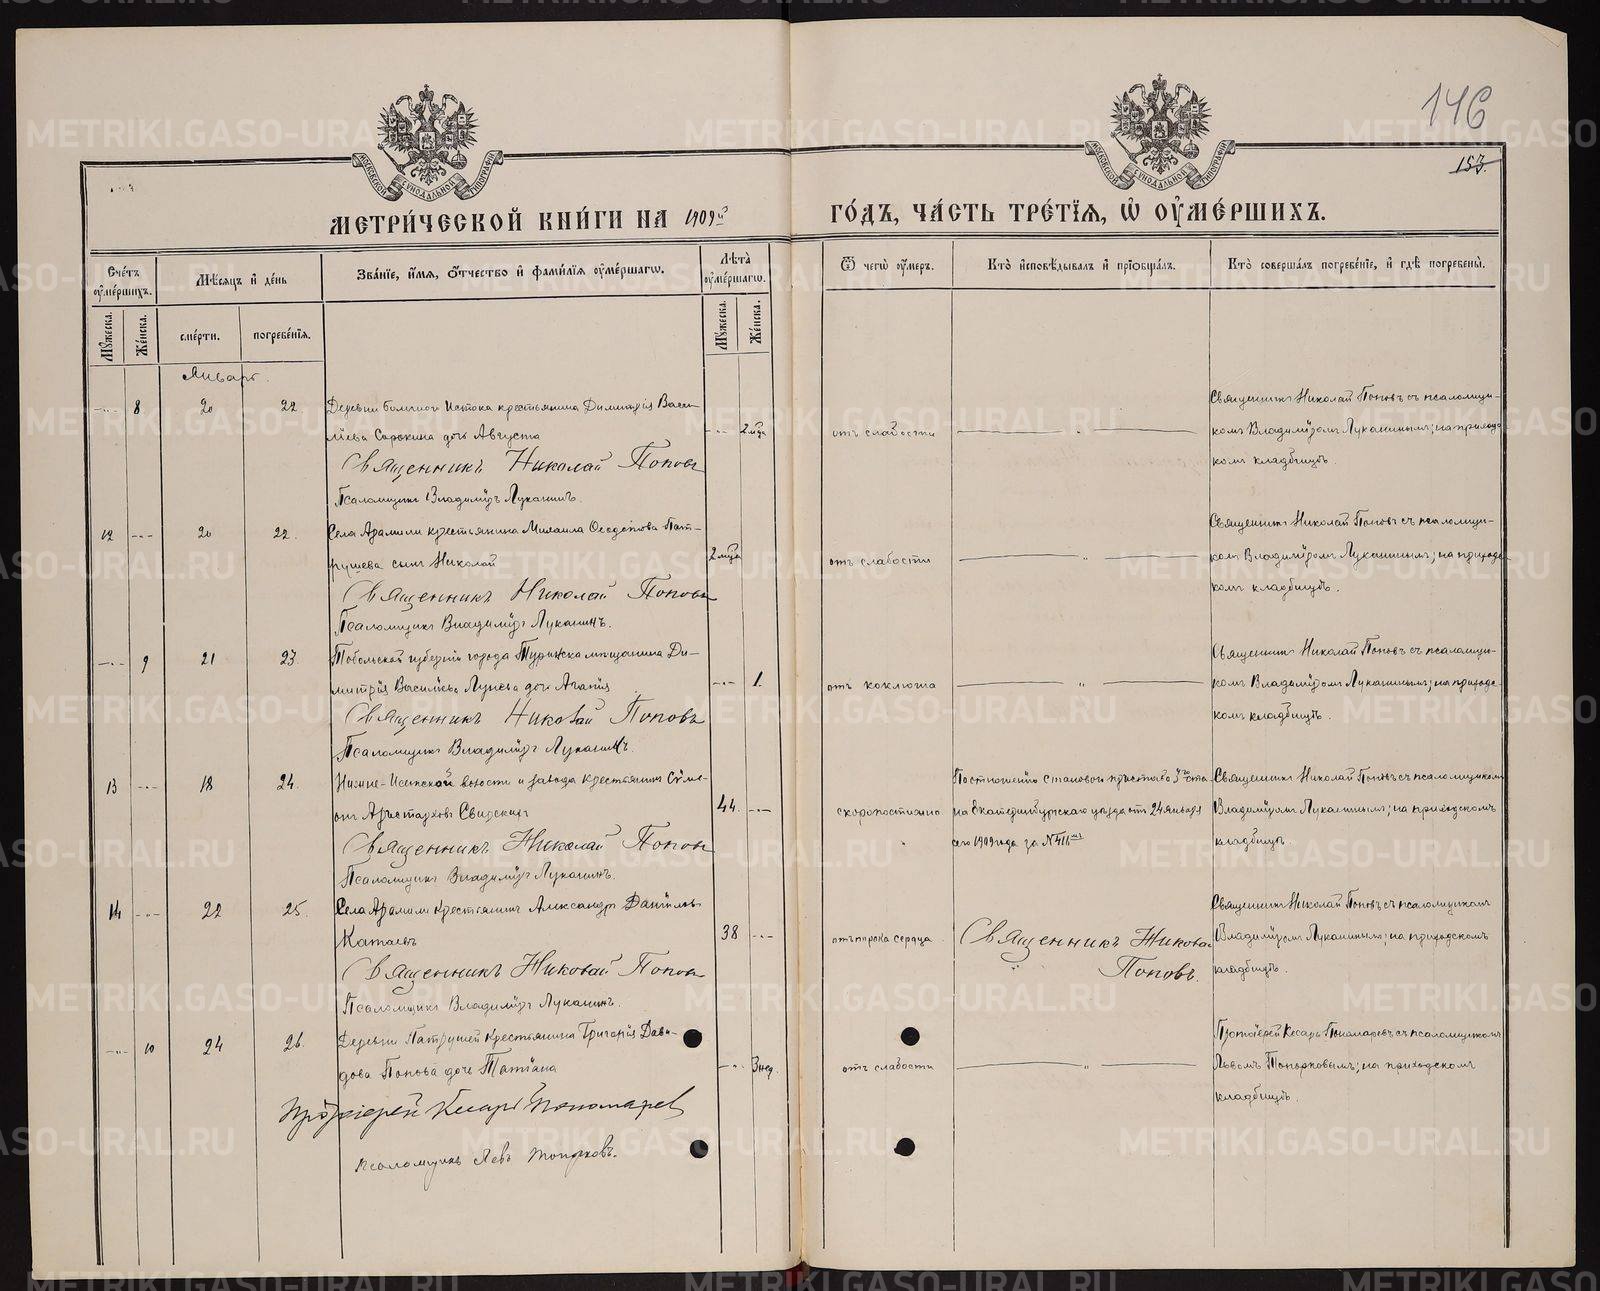 146
153.
МОСКОВСКОЙ СѴНОДАЛЬНОЙ ТИПОГРАФІИ
МОСКОВСКОЙ СѴНОДАЛЬНОЙ ТИПОГРАФІИ
МЕТРИ́ЧЕСКОЙ КНИ́ГИ НА 1909й
ГО́ДЪ, ЧА́СТЬ ТРЕ́ТЇѦ, Ѡ ОУ҆МЕ́РШИХЪ.
Сче́тъ оу҆ме́ршихъ.
Мꙋ́жеска.
Же́нска.
Мѣ́сѧцъ и҆ де́нь
сме́рти.
погребе́нїѧ.
Зва́нїе, и҆́мѧ, ѻ҆́тчество и҆ фами́лїѧ оу҆ме́ршагѡ.
Лѣ́та̀ оу҆ме́ршагѡ.
Мꙋ́жеска.
Же́нска.
Ѿ чегѡ̀ оу҆́меръ.
Кто̀ и҆сповѣ́дывалъ и҆ прїѡбща́лъ.
Кто̀ соверша́лъ погребе́нїе, и҆ гдѣ̀ погребены̀.
Январь.
8 20 22
Деревни Большого Истока крестьянина Димитрія Васи-
льева Сорокина дочь Августа
Священникъ Николай Поповъ
Псаломщикъ Владиміръ Луканинъ.
2 мца
отъ слабости
Священникъ Николай Поповъ съ псаломщи-
комъ Владиміромъ Луканинымъ; на приходс
комъ кладбищѣ.
12 20 22.
Села Арамили крестьянина Михаила Ѳеодотова Пат-
рушева сынъ Николай
Священникъ Николай Поповъ
Псаломщикъ Владиміръ Луканинъ.
2 мца
отъ слабости
Священникъ Николай Поповъ съ псаломщи-
комъ Владиміромъ Луканинымъ; на приходс
комъ кладбищѣ.
9 21 23.
Тобольской губерніи города Туринска мѣщанина Ди-
митрія Васильева Лунева дочь Агапія
Священникъ Николай Поповъ
Псаломщикъ Владиміръ Луканинъ.
1.
отъ коклюша
Священникъ Николай Поповъ съ псаломщи-
комъ Владиміромъ Луканинымъ; на приходс-
комъ кладбищѣ.
13 18 24.
Нижне-Исетской волости и завода крестьянинъ Сѵме-
онъ Аристарховъ
Священникъ Николай Поповъ
Псаломщикъ Владиміръ Луканинъ.
44.
скоропостижно
По отношенію Станового пристава 3го ста
на Екатеринбургскаго уѣзда отъ 24 Января
сего 1909 года за №
Священникъ Николай Поповъ съ псаломщикомъ
Владиміромъ Луканинымъ; на приходскомъ
кладбищѣ.
14 22 25.
Села Арамили крестьянинъ Александръ Даніиловъ
Катаевъ
Священникъ Николай Поповъ
Псаломщикъ Владиміръ Луканинъ.
38
отъ порока сердца
Священникъ Николай
Поповъ.
Священникъ Николай Поповъ съ псаломщикомъ
Владиміромъ Луканинымъ; на приходскомъ
кладбищѣ.
10 24 26.
Деревни Патрушей крестьянина Григорія Дави-
дова Попова дочь Татіана
Протоіерей Кесарь Пономаревъ
псаломщикъ Левъ Топорковъ.
3 нед.
отъ слабости
Протоіерей Кесарь Пономаревъ съ псаломщикомъ
Львомъ Топорковымъ; на приходскомъ
кладбищѣ.
METRIKI.GASO-URAL.RU